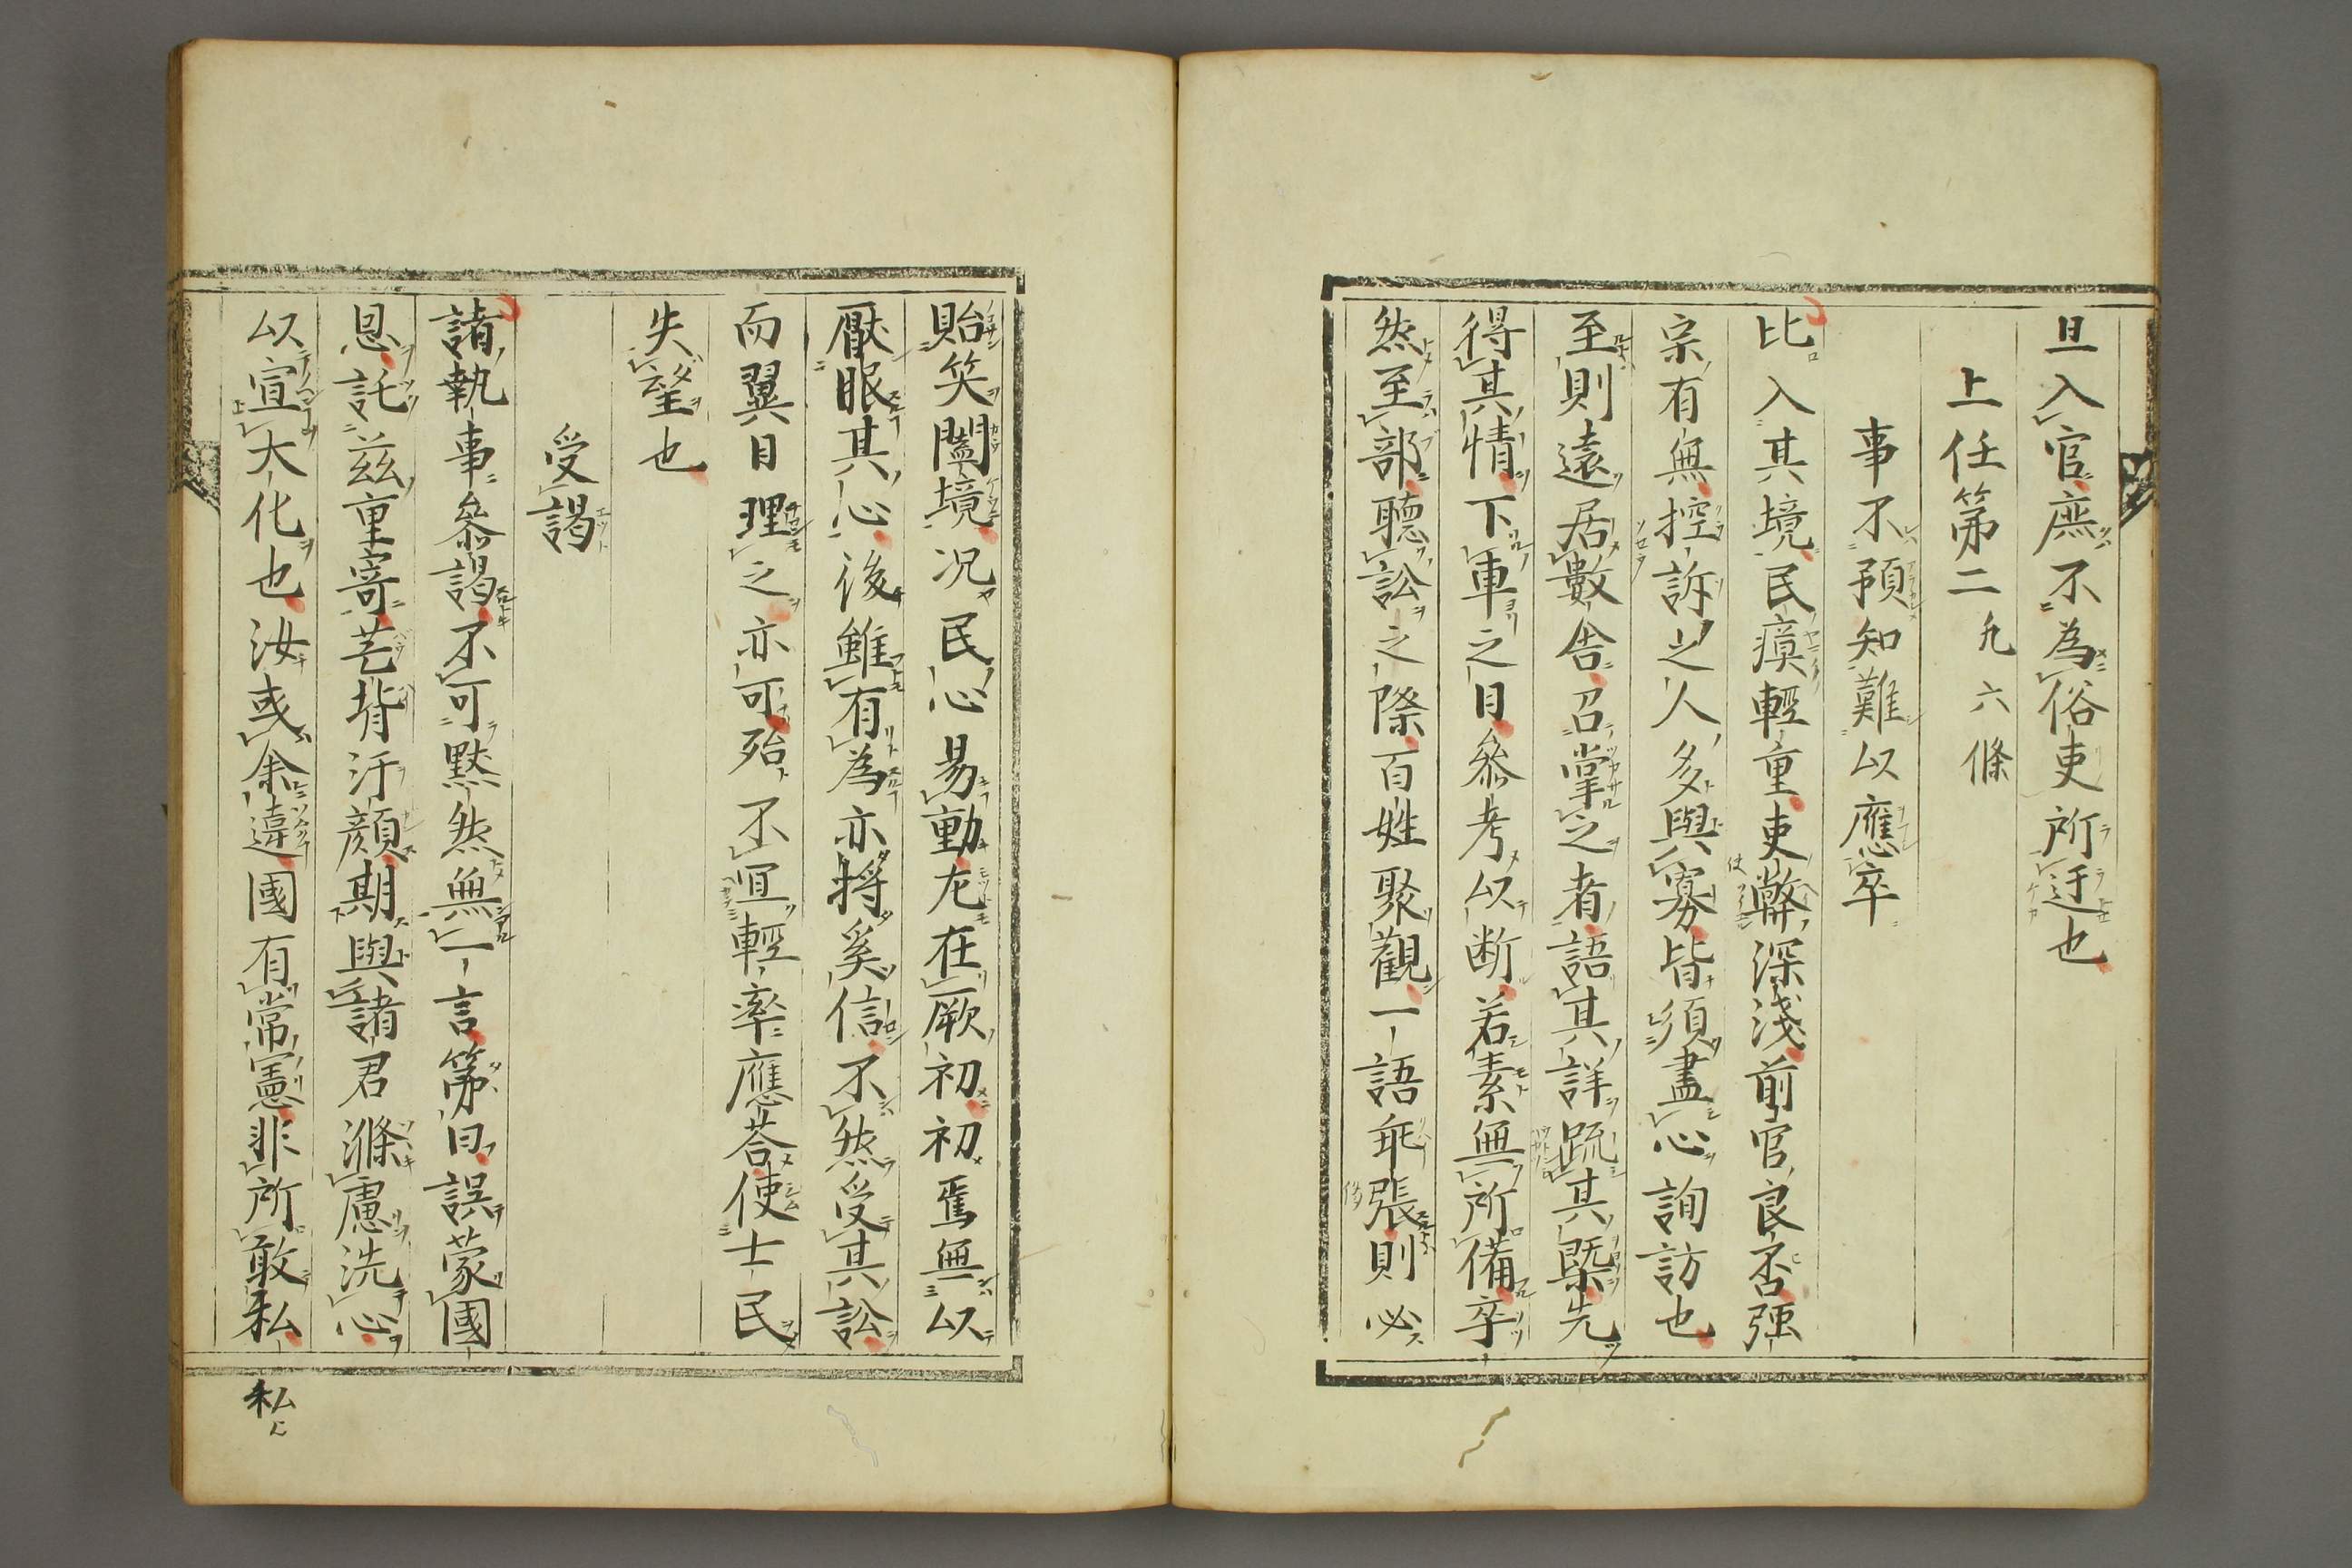 旦入官庶不為俗吏所迂也
上任第二九六條
事不預知難以應卒
比入其境民瘼輕重吏弊深淺前官良否强
宗有無控訴之人多與寡皆須盡心詢訪也
至則遠居數舎召掌之者語其詳疏其槩先
得其情下車之日叅考以断若素無所備卒
然至部聽訟之際百姓聚觀一語乖張則必
貽笑闔境况民心易動尤在厥初初焉無以
厭眼其心後雖有為亦將奚信不然受其訟
而翼日理之亦可殆不宜輕率應荅使士民
失望也
受謁
諸執事叅謁不可默然無一言第曰誤蒙國
恩託兹重寄芒背汙顔期與諸君滌慮洗心
以宣大化也汝或余違國有常憲非所敢私
私